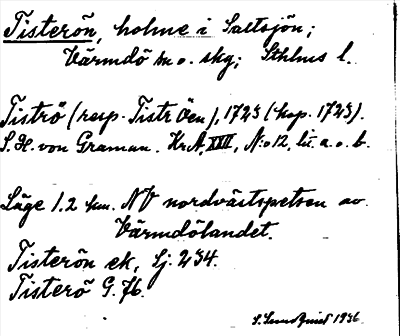 Tisterön, holme i Saltsjön;
Värmdö sn o. skg; Sthlms l.
Tiströ (resp. Tiströen), 1723 (kop. 1723).
S. H. von Graman. Kr.A, XXIII, N:o 12, lit. a. o. b.
Läge 1.2 km. NV nordvästspetsen av
Värmdölandet.
Tisterön ek, Sj. 234.
Tisterö G. 76.
S. Sundquist 1936